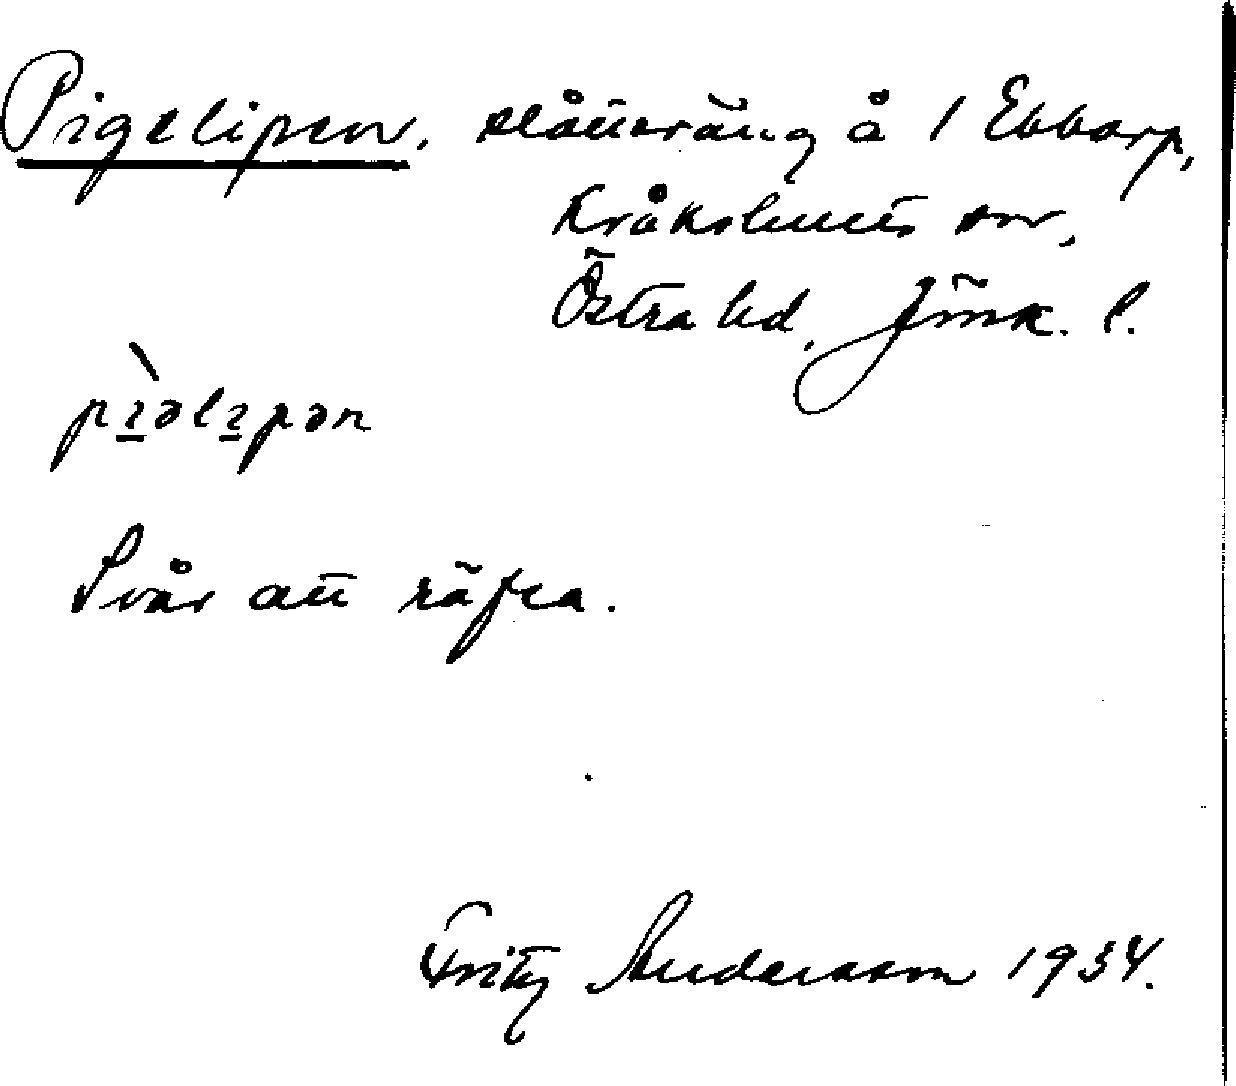 Pigelipen, slåtteräng å 1 Ebbarp,
Kråkshults sn,
Östra hd, Jönk. l.
pìəlɪpən
Svår att räfsa.
Fritz Andersson 1934.